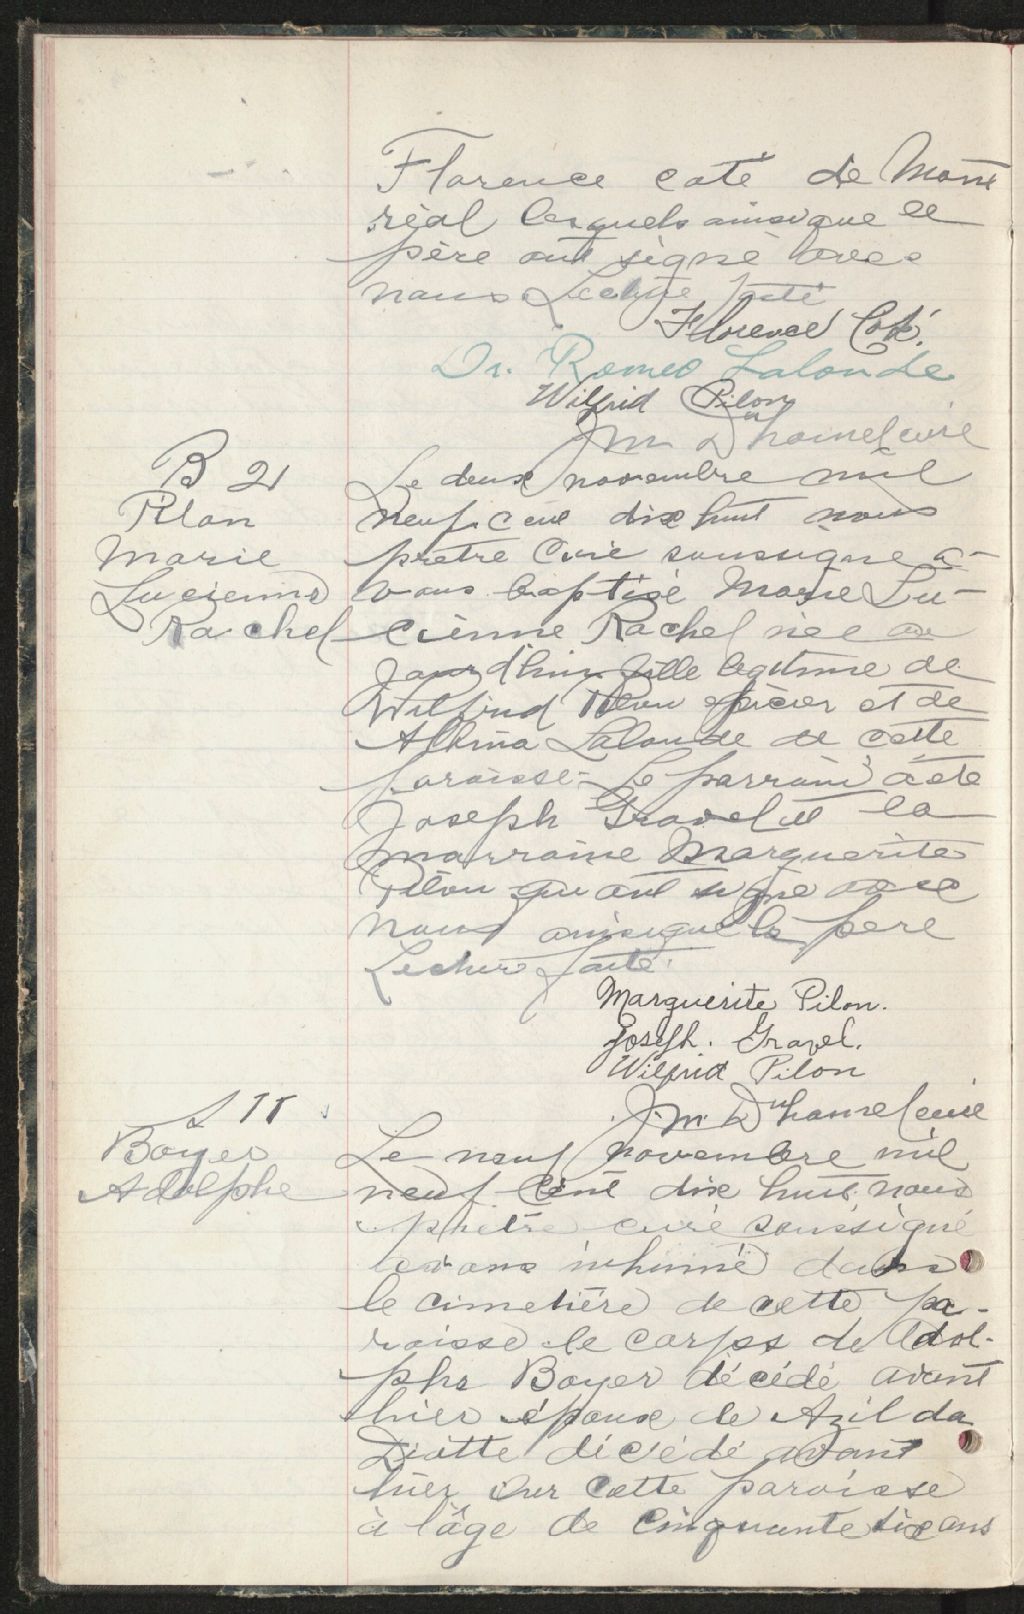 Florence coté de Mont
réal lesquels ainsi que le
père ont signé avec
nous Lecture faite
Florence Coté.
Dr. Romeo Lalonde
Wilfrid Pilon
J M Duhamel curé
B 21
Pilon
Marie
Lucienne
Rachel
Le deux novembre mil
neuf cent dix huit nous
prêtre curé soussigné a-
vons baptisé Marie Lu-
cienne Rachel née au
jourd'hui fille legitime de
Wilfrid Pilon épicier et de
Albina Lalonde de cette
paroisse. Le parrain a été
Joseph Gravel et la
marraine Marguerite
Pilon qui ont signé avec
nous ainsi que le père
Lecture faite.
Marguerite Pilon.
Joseph. Gravel.
Wilfrid Pilon
J. M. Duhamel curé
S 11
Boyer
Adolphe
Le neuf novembre mil
neuf cent dix huit nous
prêtre curé soussigné
avons inhumé dans
le cimetière de cette pa-
roisse le corps de Adol-
phe Boyer décédé avant
hier époux de Azilda
Diotte décédé avant
hier sur cette paroisse
à l'âge de cinquante six ans